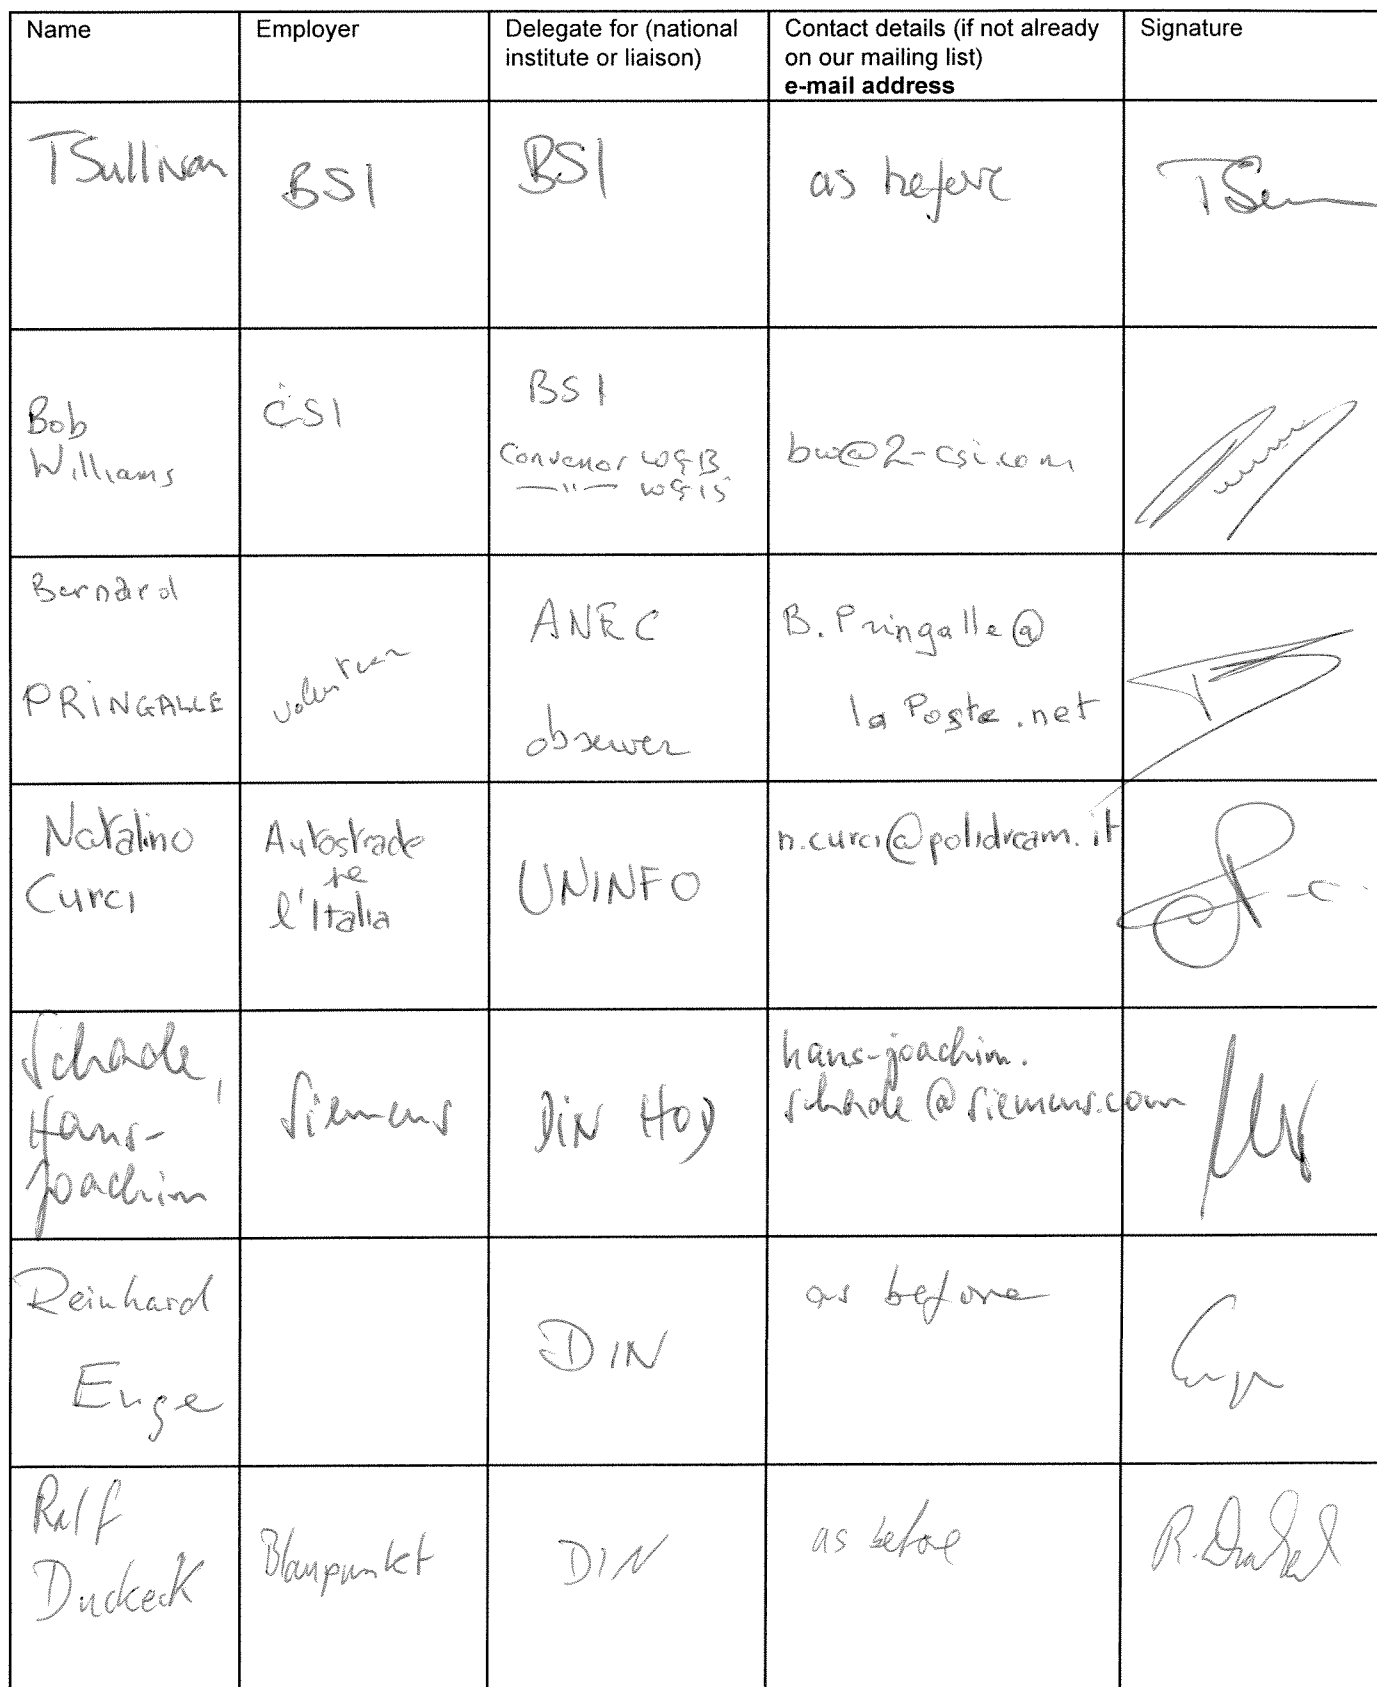 Name
Employer
Delegate for (national
institute or liaison)
Contact details (if not already
on our mailing list)
e-mail address
Signature
TSullivan
BSI
BSI
as before
Bob
Williams
CSI
BSI
Convenor WG13
—"— WG15
bw@2-csi.com
Bernard
PRINGALLE
ANEC
observer
B.Pringalle@
laPoste.net
Natalino
Curci
Autostrade
l'Italia
UNINFO
n.curci@polidream.it
Schade,
Hans-
Joachim
Siemens
DIN HOD
hans-joachim.
schade@siemens.com
Reinhard
Enge
DIN
as before
Ralf
Duckeck
Blaupunkt
DIN
as before
R.Duckeck